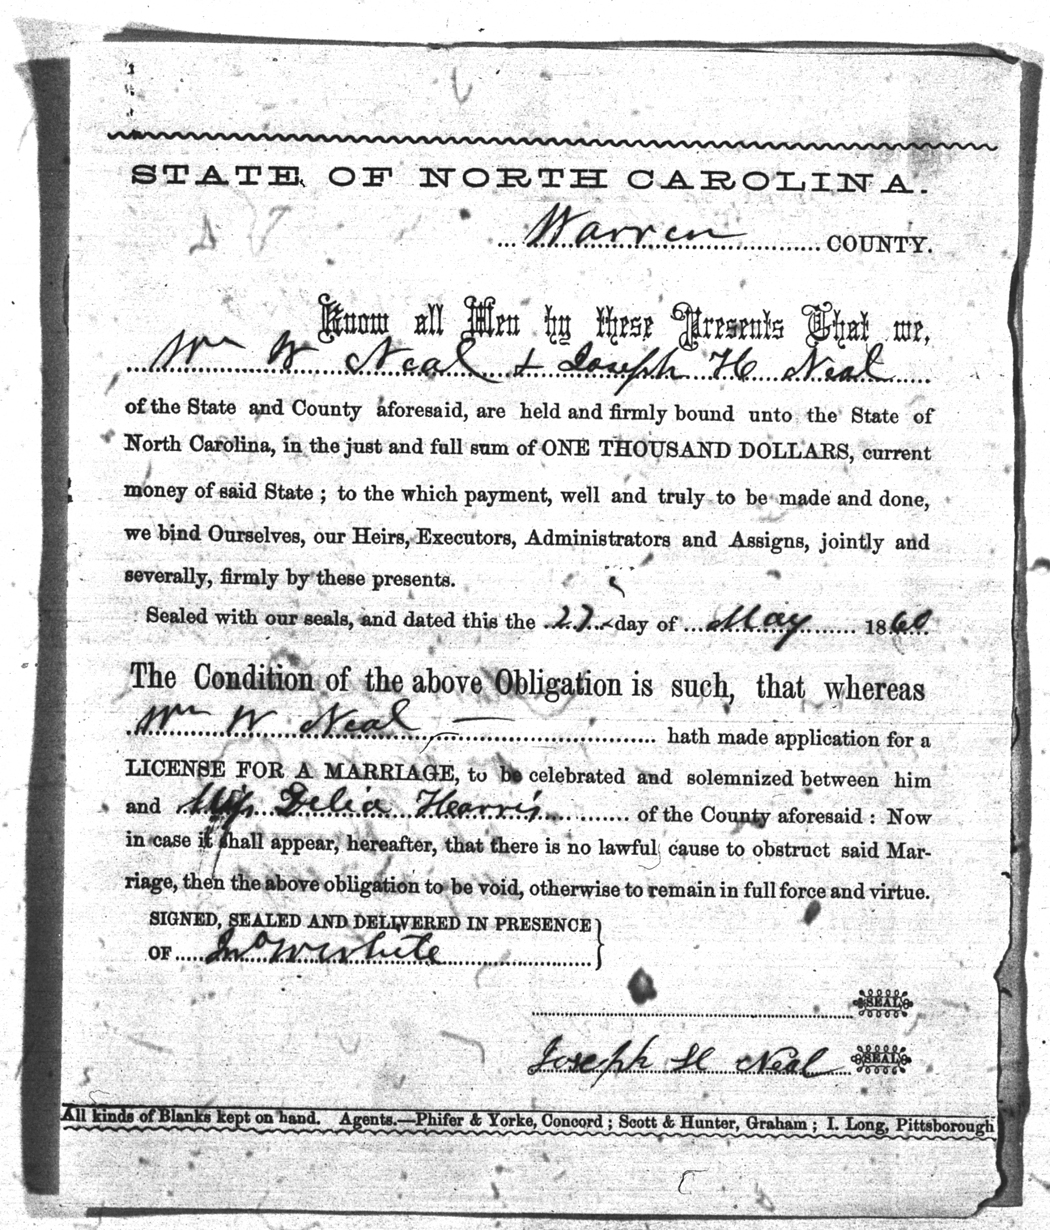 STATE OF NORTH CAROLINA.
Warren COUNTY.
Know all Men by these Presents That we,
Wm W Neal & Joseph H Neal
of the State and County aforesaid, are held and firmly bound unto the State of
North Carolina, in the just and full sum of ONE THOUSAND DOLLARS, current
money of said State ; to the which payment, well and truly to be made and done,
we bind Ourselves, our Heirs, Executors, Administrators and Assigns, jointly and
severally, firmly by these presents.
Sealed with our seals, and dated this the 22 day of May 1860
The Condition of the above Obligation is such, that whereas
Wm W Neal hath made application for a
LICENSE FOR A MARRIAGE, to be celebrated and solemnized between him
and Miss Delia Harris of the County aforesaid : Now
in case it shall appear, hereafter, that there is no lawful cause to obstruct said Mar-
riage, then the above obligation to be void, otherwise to remain in full force and virtue.
SIGNED, SEALED AND DELIVERED IN PRESENCE
OF Jno W White
SEAL
Joseph H Neal SEAL
All kinds of Blanks kept on hand. Agents.—Phifer & Yorke, Concord ; Scott & Hunter, Graham ; I. Long, Pittsborough